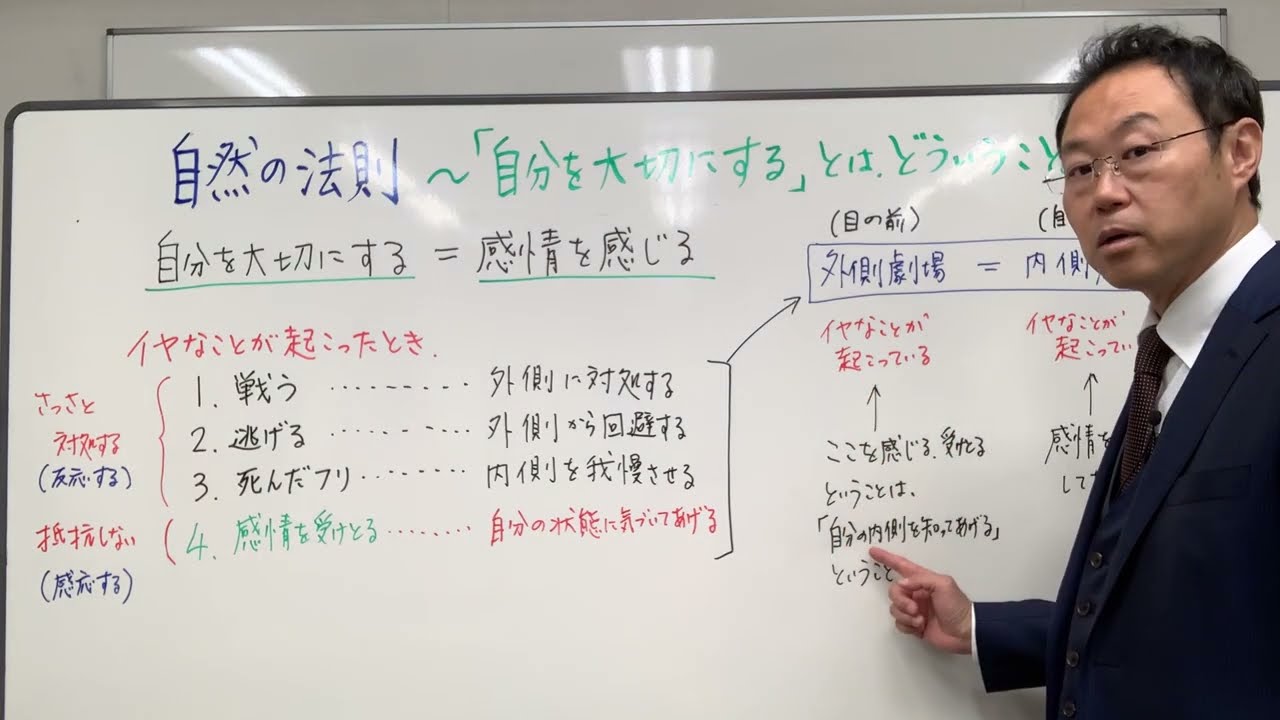 自然の法則 ～「自分を大切にする」とは、どういうこと
自分を大切にする = 感情を感じる
イヤなことが起こったとき、
さっさと
対処する
(反応する)
1. 戦う ・・・・・・・・・・ 外側に対処する
2. 逃げる ・・・・・・・・・ 外側から回避する
3. 死んだフリ ・・・・・・・ 内側を我慢させる
抵抗しない
(感応する)
4. 感情を受けとる ・・・・・・・・ 自分の状態に気づいてあげる
(目の前)
外側劇場 = 内側
イヤなことが
起こっている
ここを感じる、受けとる
ということは、
「自分の内側を知ってあげる」
ということ
イヤなことが
起こってい
感情を
して